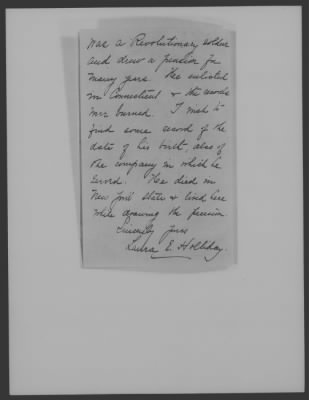 was a Revolutionary soldier
and drew a pension for
many years. He enlisted
in Connecticut & the records
were burned. I wish to
find some record of the
date of his birth, also of
the company in which he
served. He died in
New York state & lived here
while drawing the pension.
Sincerely yours
Laura E. Holliday.